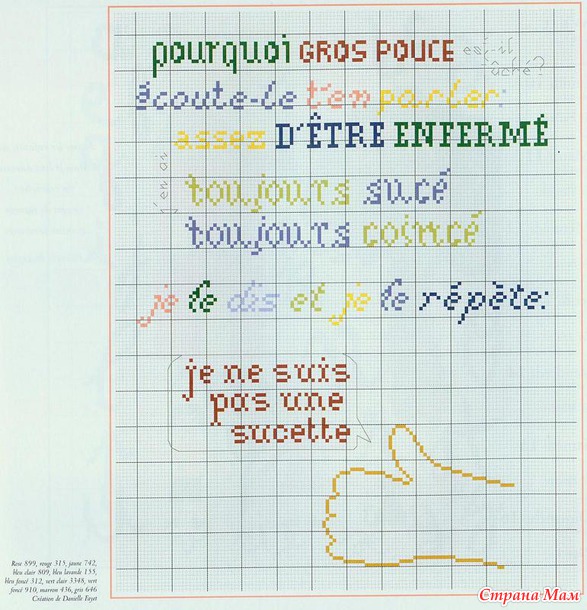 pourquoi GROS POUCE est-il
fâché?
écoute-le t'en parler:
j'en ai
assez D'ÊTRE ENFERMÉ
toujours sucé
toujours coincé
je le dis et je le répète:
je ne suis
pas une
sucette
Rose 899, rouge 315, jaune 742,
bleu clair 809, bleu lavande 155,
bleu foncé 312, vert clair 3348, vert
foncé 910, marron 436, gris 646
Création de Danielle Fayet
Страна Мам